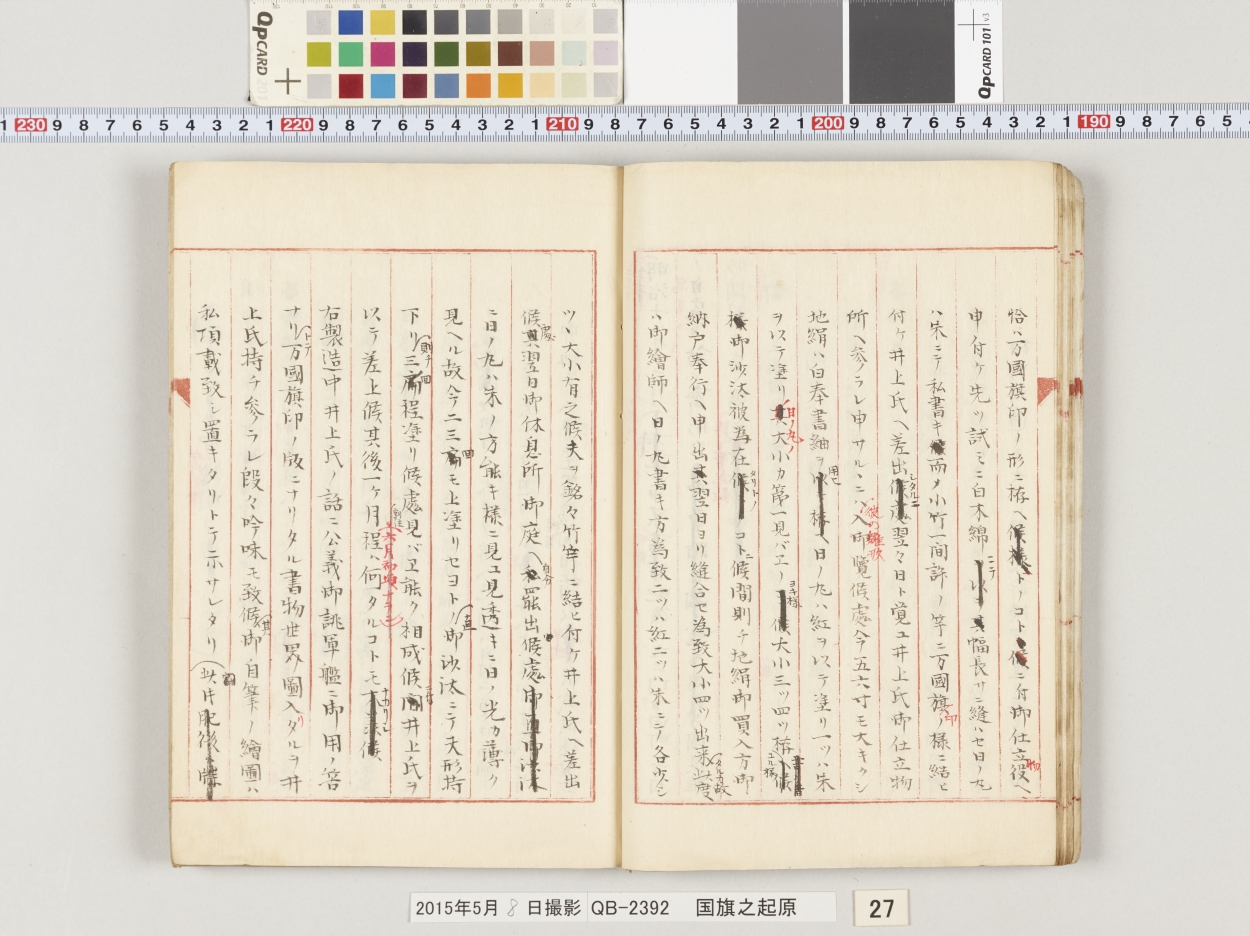 恰ハ万國旗印ノ形ニ拵ヘ候様トノコト候ニ付御仕立役ヘ
申付ケ先ツ試ミニ白木綿ニテ幅長サニ縫ハセ日ノ丸
ハ朱ニテ私書キ而ノ小竹一間許ノ竿ニ万國旗印ノ様ニ結ヒ
付ケ井上氏ヘ差出シタルニ翌々日ト覚ユ井上氏御仕立物
所ヘ参ラレ申サルヽニハ入御覧候處今五六寸モ大キクシ
地絹ハ白奉書紬ヲ用ヒ日ノ丸ハ紅ヲ以テ塗リ一ツハ朱
ヲ以テ塗リ日ノ丸ノ大小カ第一見バヱノヨキ様大小三ツ四ツ拵
様御沙汰被為在タリトノコトニ候間則チ地絹御買入方御
納戸奉行ヘ申出其翌日ヨリ縫合セ為致大小四ツ出来此度
ハ御繪師ヘ日ノ丸書キ方為致二ツハ紅二ツハ朱ニテ各少シ
ツヽ大小有之候夫ヲ銘々竹竿ニ結ヒ付ケ井上氏ヘ差出
候處翌日御休息所御庭ヘ自分罷出候處御直御沙汰
ニ日ノ丸ハ朱ノ方能キ様ニ見ユ見透キニ日ノ光カ薄ク
見ヘル故今二三回モ上塗リセヨトノ御沙汰ニテ夫形持
下リ則チ三回程塗リ候處見バヱ能ク相成候間井上氏ヲ
以テ差上候其後一ケ月程ハ何タルコトモ
右製造中井上氏ノ話ニ公義御誂軍艦ニ御用ノ筈
ナリトテ万國旗印ノ版ニナリタル書物世界ノ圖入タルヲ井
上氏持チ参ラレ段々吟味モ致候其御自筆ノ繪圖ハ
私頂戴致シ置キタリトテ示サレタリ
2015年5月 8 日撮影 QB-2392 国旗之起原
27
QPCARD 101 v3
QPCARD 201
230 9 8 7 6 5 4 3 2 1 220 9 8 7 6 5 4 3 2 1 210 9 8 7 6 5 4 3 2 1 200 9 8 7 6 5 4 3 2 1 190 9 8 7 6 5